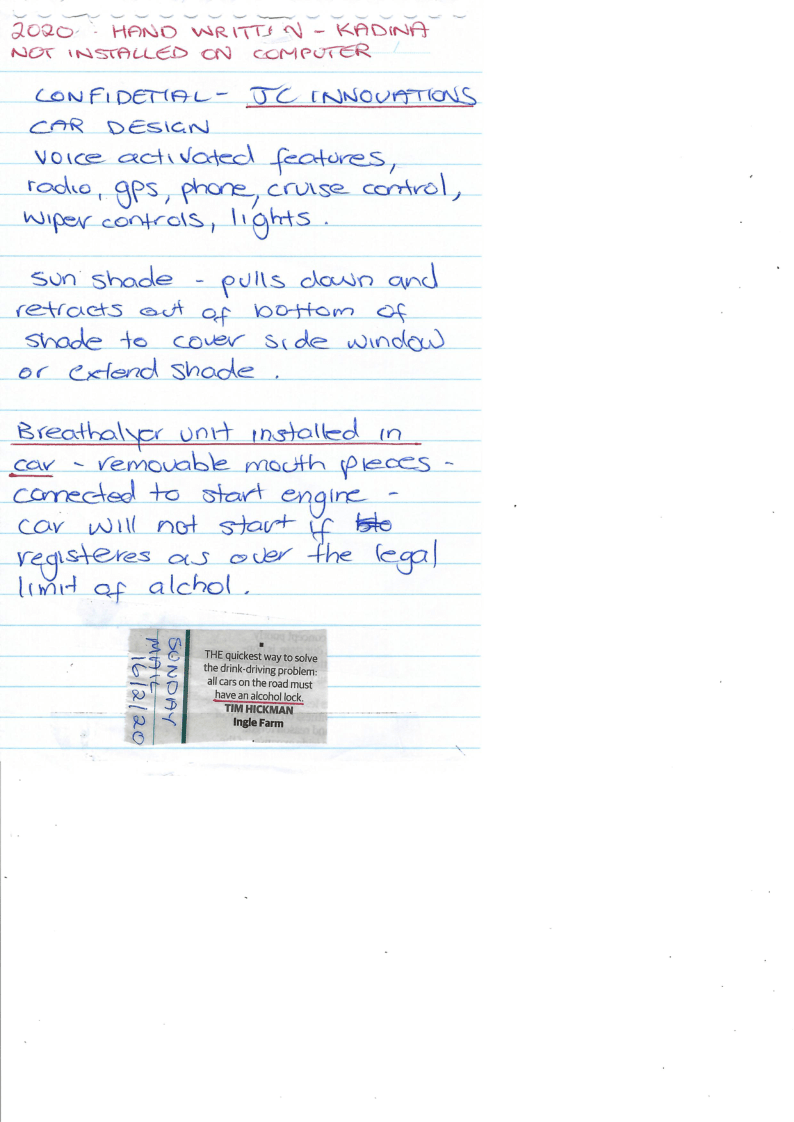 2020 - HAND WRITTIN - KADINA
NOT INSTALLED ON COMPUTER
CONFIDETIAL - JC INNOVATIONS
CAR DESIGN
Voice activated features,
radio, gps, phone, cruise control,
wiper controls, lights.
Sun shade - pulls down and
retracts out of bottom of
shade to cover side window
or extend shade.
Breathalyer unit installed in
car - removable mouth pieces -
connected to start engine -
car will not start if
registeres as over the legal
limit of alchol.
SUNDAY
MAIL
16/2/20
THE quickest way to solve
the drink-driving problem:
all cars on the road must
have an alcohol lock.
TIM HICKMAN
Ingle Farm